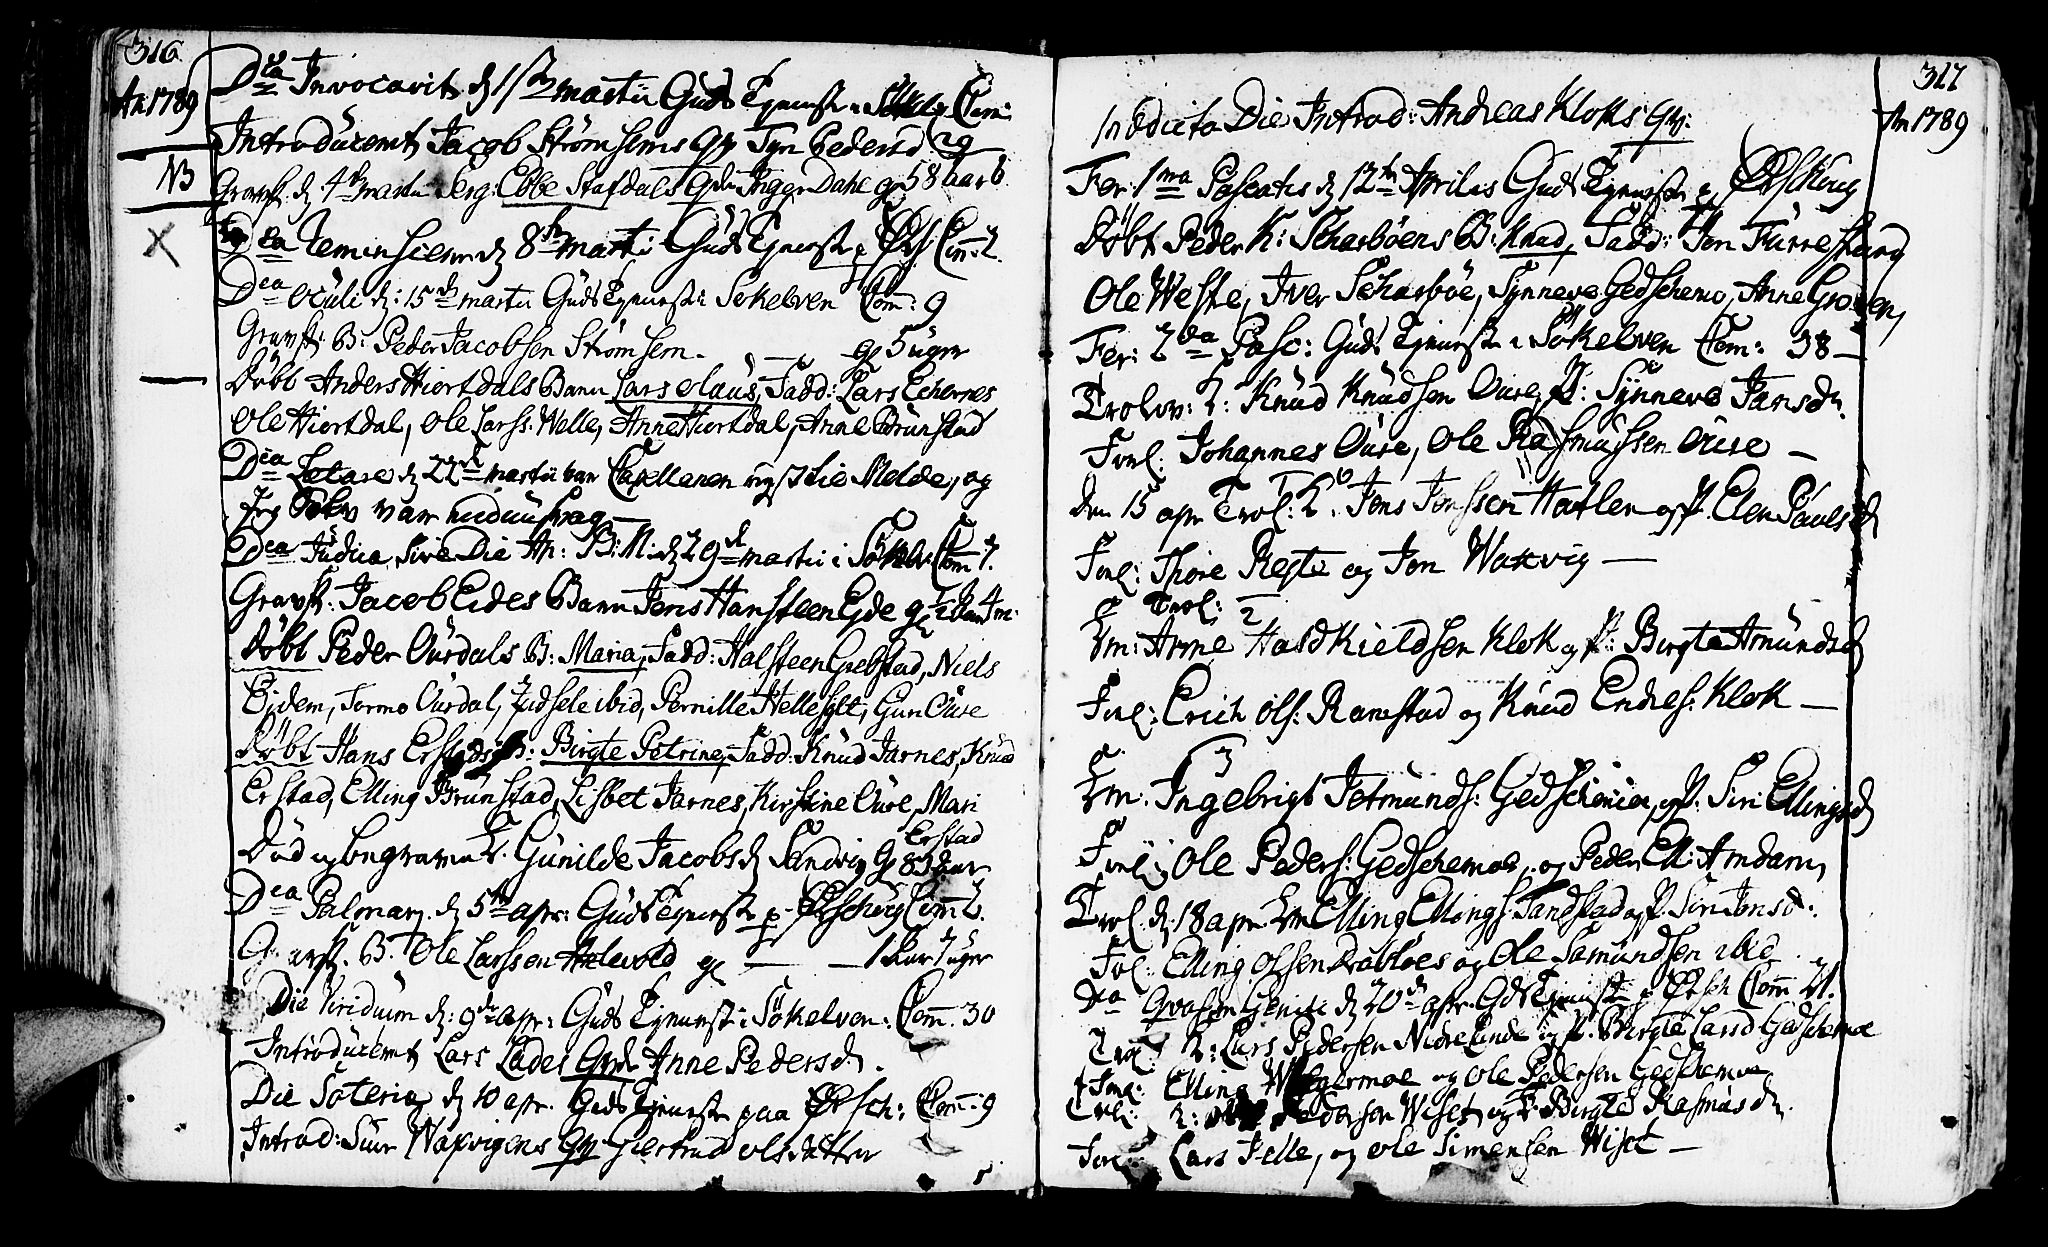 316
An 1789
Dca Invocavit d 1ste martii Guds Tjeneste i Søkelv: Com:
Introduceret Jacob Strømhems Qv Syn Pedersd 29
NB
Gravf: d 4de martii Serg: Ebbe Stafdals Qvde Inger Dahl gl 58 aar 6
X
Dca Reminscere d 8de martii Guds Tjeneste p Ørsk: Com: 2.
Dca Oculi d: 15de martii Guds Tjeneste i Søkelven Com: 9
Gravf: B: Peder Jacobsen Strømhem — gl 5 uger
Døbt Anders Hiortdals Barn Lars Olaus, Fadd: Lars Echornes
Ole Hiortdal, Ole Larss: Welle, Anne Hiortdal, Anne Brunstad
Dca Letare d 22de martii var Capellanen syg i Melde, og
Jeg
Dca Judica, sive Die An: B: M: d 29de martii i Søkelv: Com 7.
Gravf: Jacob Eides Barn Jens Hansteen Eide gl 1/2 Aar 4 m:
Døbt Peder Aurdals B: Maria, Fadd: Halsteen Grebstad, Niels
Eidem, Tormo Aurdal, Zidsele ibid, Pernille Hellesylt, Gun Aure
Døbt Hans Erstads B: Birgte Petrine, Fadd: Knud Jarnes, Knud
Erstad, Elling Brunstad, Lisbet Jarnes, Kirstine Aure, Mari
Erstad
Død og begravet Gunilde Jacobsd Sandvig gl 83 aar
Dca Palmar: d 5te apr: Guds Tjeneste p Ørschoug Com 2.
Gravf: B: Ole Larssen gl — — 1 Aar 7 uger
Die Viridium d: 9de apr: Guds Tjeneste i Søkelven: Com: 30
Introduceret Lars Lades Qvde Anne Pedersd.
Die Soteria d 10 apr. Guds Tjeneste paa Ørsch: Com: 9
Introd: Siur Waxvigens Qv Giertrud Olsdatter
317
An 1789
In Edicto Die Introd: Andreas Kloks Qv:
Fer: 1ma Pascatis d 12te Aprilis Guds Tjeneste p Ørskoug
Døbt Peder K: Scharbøens B: Knud, Fadd: Jon Furrestrand
Ole Weste, Iver Scharbøe, Synneve Gedschemo, Anne Groven,
Fer: 2da Pasc: Guds Tjeneste i Søkelven Com: 38 —
Trolov: : Knud Knudsen Aure, P: Synneve Jansdr.
Forl: Johannes Aure, Ole Rasmussen Aure —
den 15 apr Trol: : Jens Jenssen Hatlen og P. Elen Paulsd
Forl: Thore Regte og Jon Waxvig —
Trol: 2
Em: Arne Hasdkieldsen Klok og P: Birgte Amundsd
Forl: Erich Ols: Ramstad og Knud Endres: Klok —
3
Em: Ingebrigt Jetmunds: Gedschemoe, og P: Siri Ellingsd
Forl: Ole Peders: Gedschemoe, og Peder Ell: Amdam,
Trol d. 18 apr: Em Elling Ellings: Tandstad og P. Siri Jonsd:
Forl: Elling Olsen Drabløes og Ole Samundsen ibid
Dca Qvasimogeniti d 20de apr. Gds Tjeneste p Ørsch Com 21.
Trol : Lars Pedersen Nidre Lande og P. Birgte Larsd Gedschemoe
Forl: Elling og Ole Pedersen Gedschemoe
Trol: : Pedersen Wiset og P: Birgte Rasmusd
Forl: Lars Velle, og Ole Simensen Wiset —